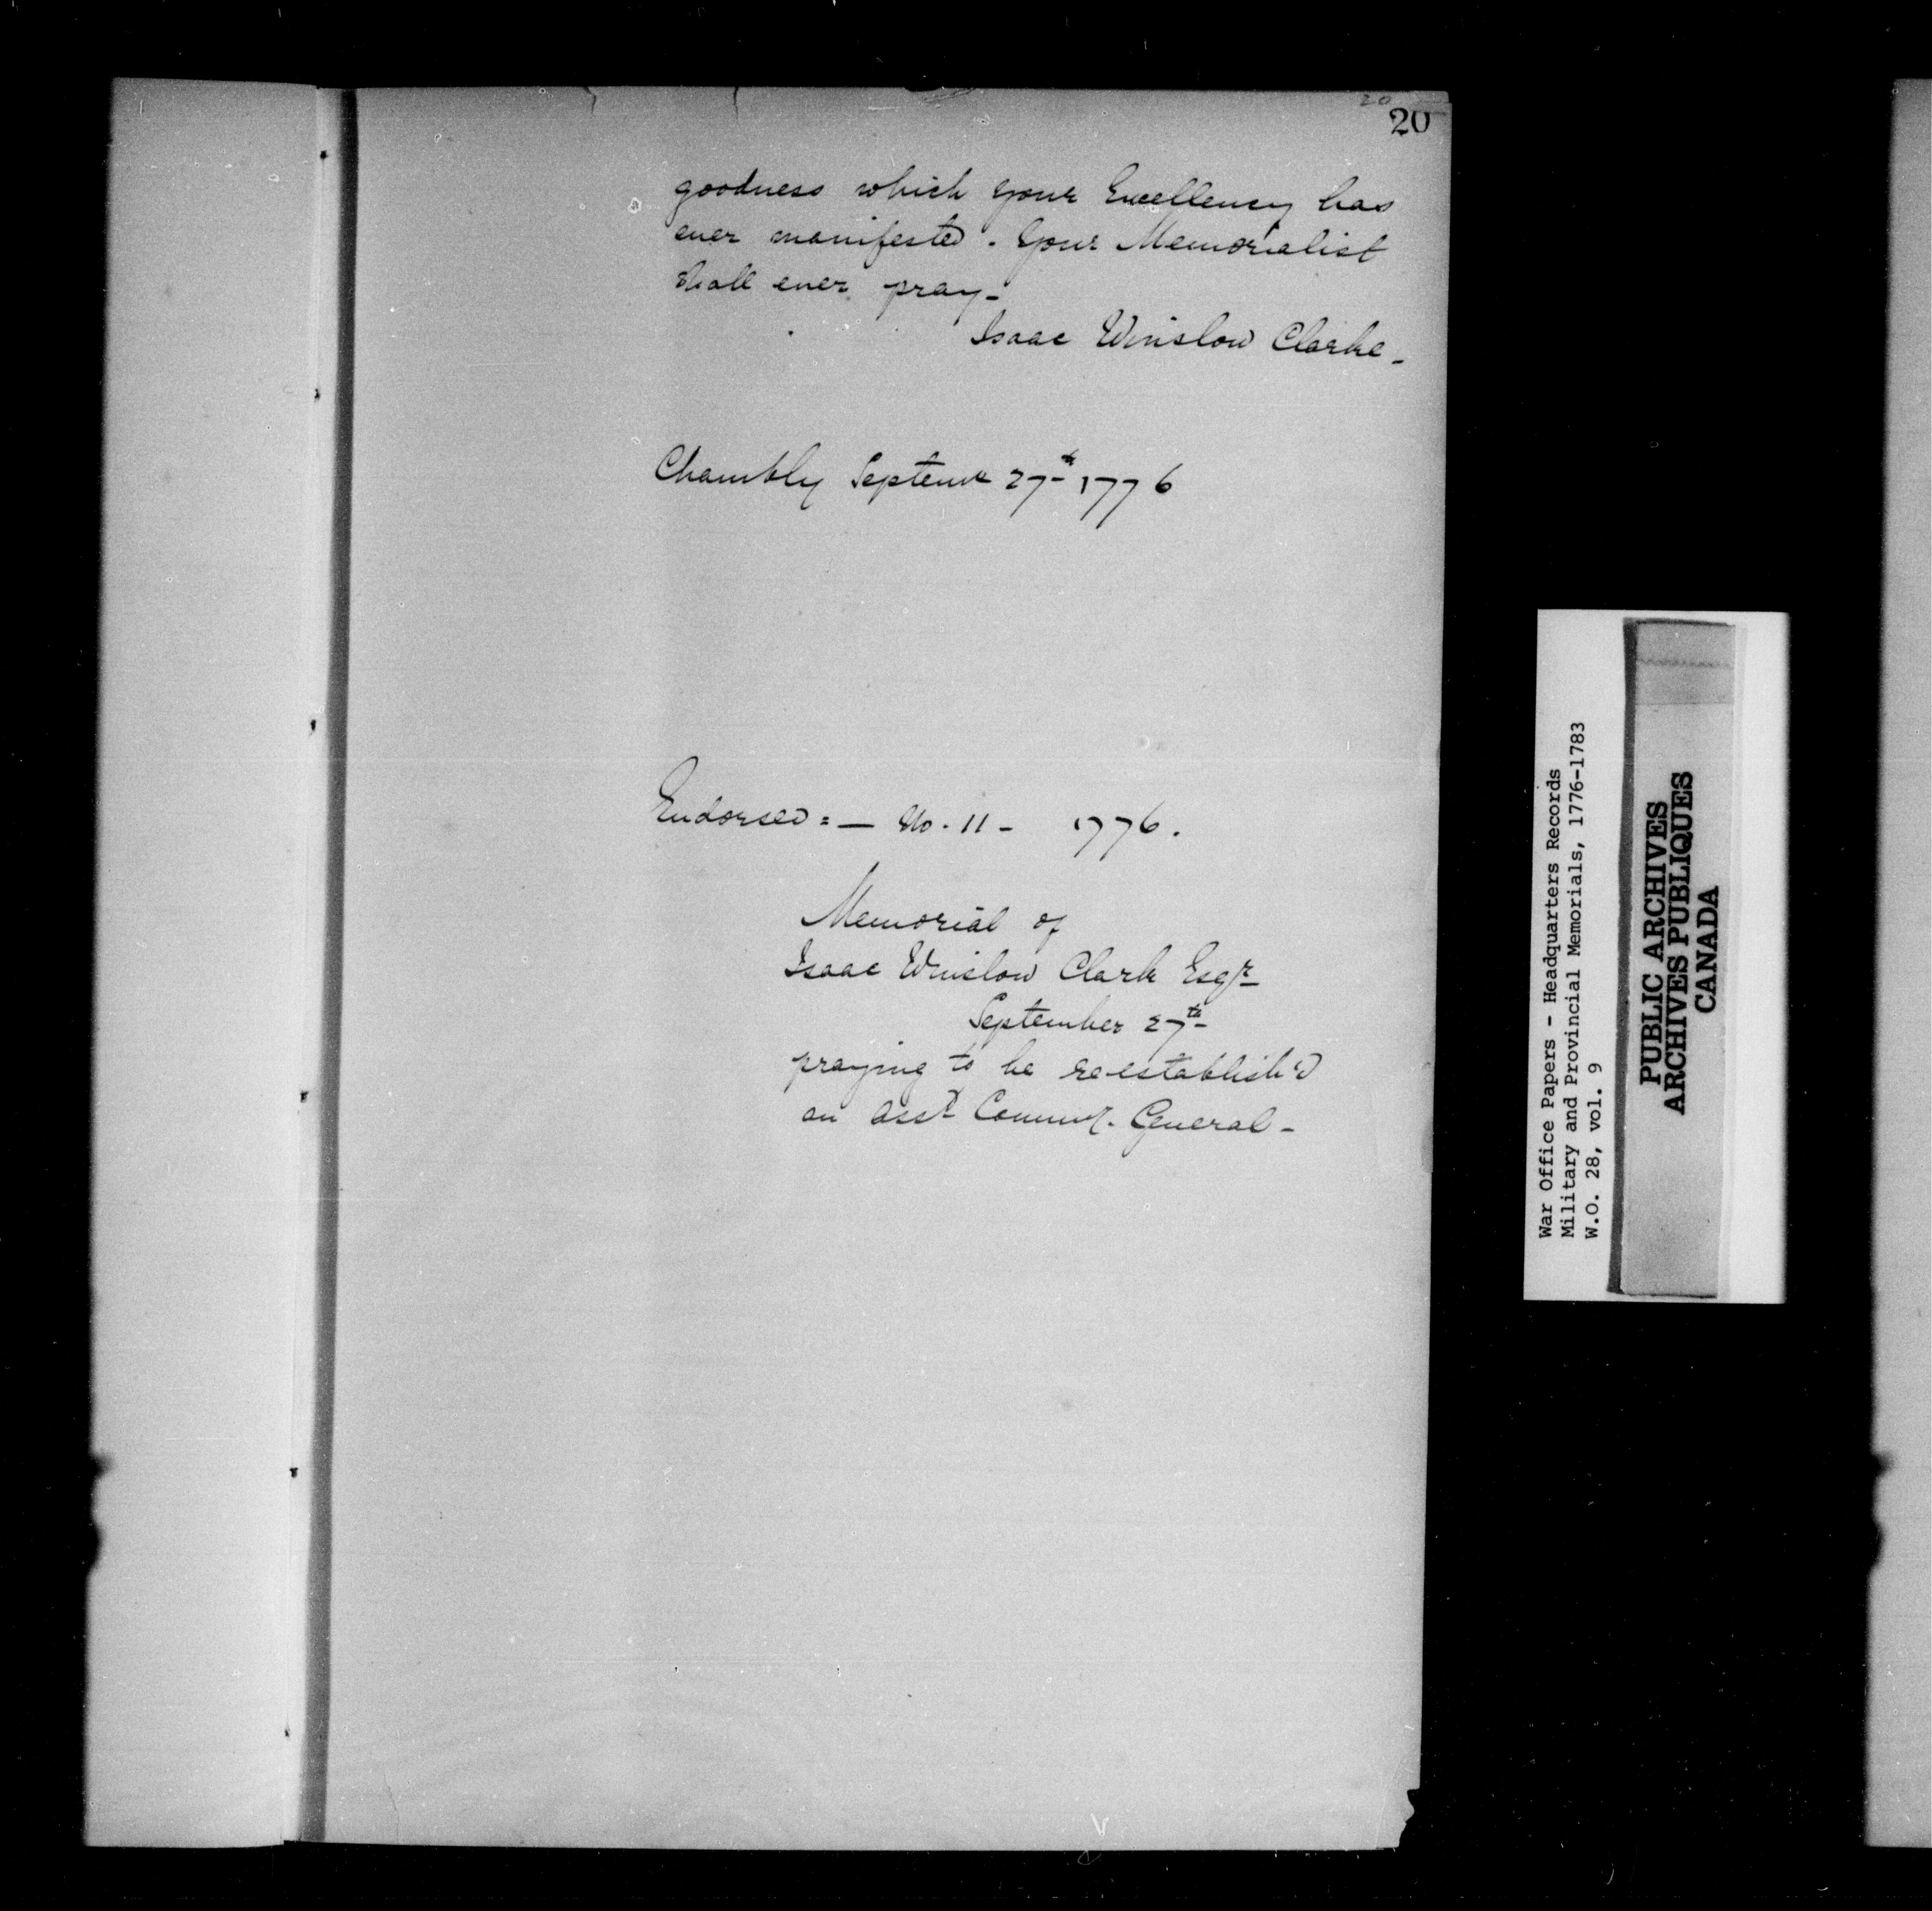 20
20
goodness which your Excellency has
ever manifested. Your Memorialist
shall ever pray-
Isaac Winslow Clarke-
Chambly Septemr 27th 1776
Endorsed:- No. 11- 1776.
Memorial of
Isaac Winslow Clark Esqr
September 27th
praying to be re-establish'd
an Asst Commy. General-
War Office Papers - Headquarters Records
Military and Provincial Memorials, 1776-1783
W.O. 28, vol. 9
PUBLIC ARCHIVES
ARCHIVES PUBLIQUES
CANADA